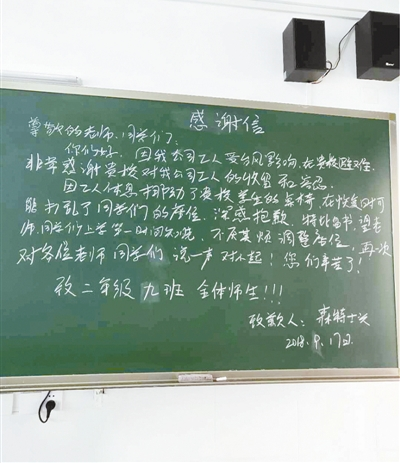 感谢信
尊敬的老师、同学们：
你们好，因我公司工人受台风影响，在贵校避险，
非常感谢贵校对我公司工人的收留和容忍。
因工人休息挪动了贵校学生的桌椅，在恢复时可
能打乱了同学们的座位，深感抱歉，特此告书，望老
师、同学们上学第一时间，不厌其烦调整座位，再次
对各位老师同学们说一声对不起！您们辛苦了！
致二年级九班全体师生!!!
致歉人：森特士兴
2018.9.17日